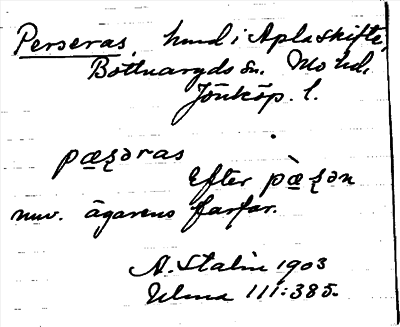 Perseras, hmd i Aplaskifte,
Bottnaryds sn. Mo hd.
Jönköp. l.
pæʂəras
Efter pæ̀ʂən
nuv. ägarens farfar.
A. Stalin 1903
Ulma 111:385.